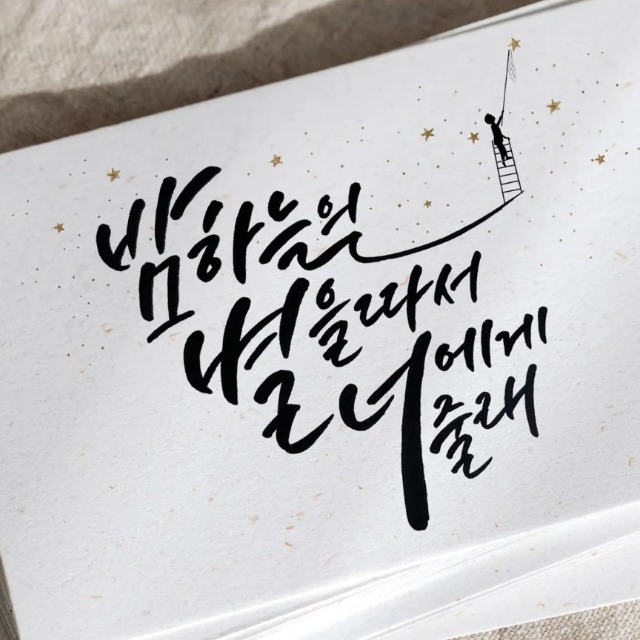 밤하늘의
별을따서
너에게
줄래